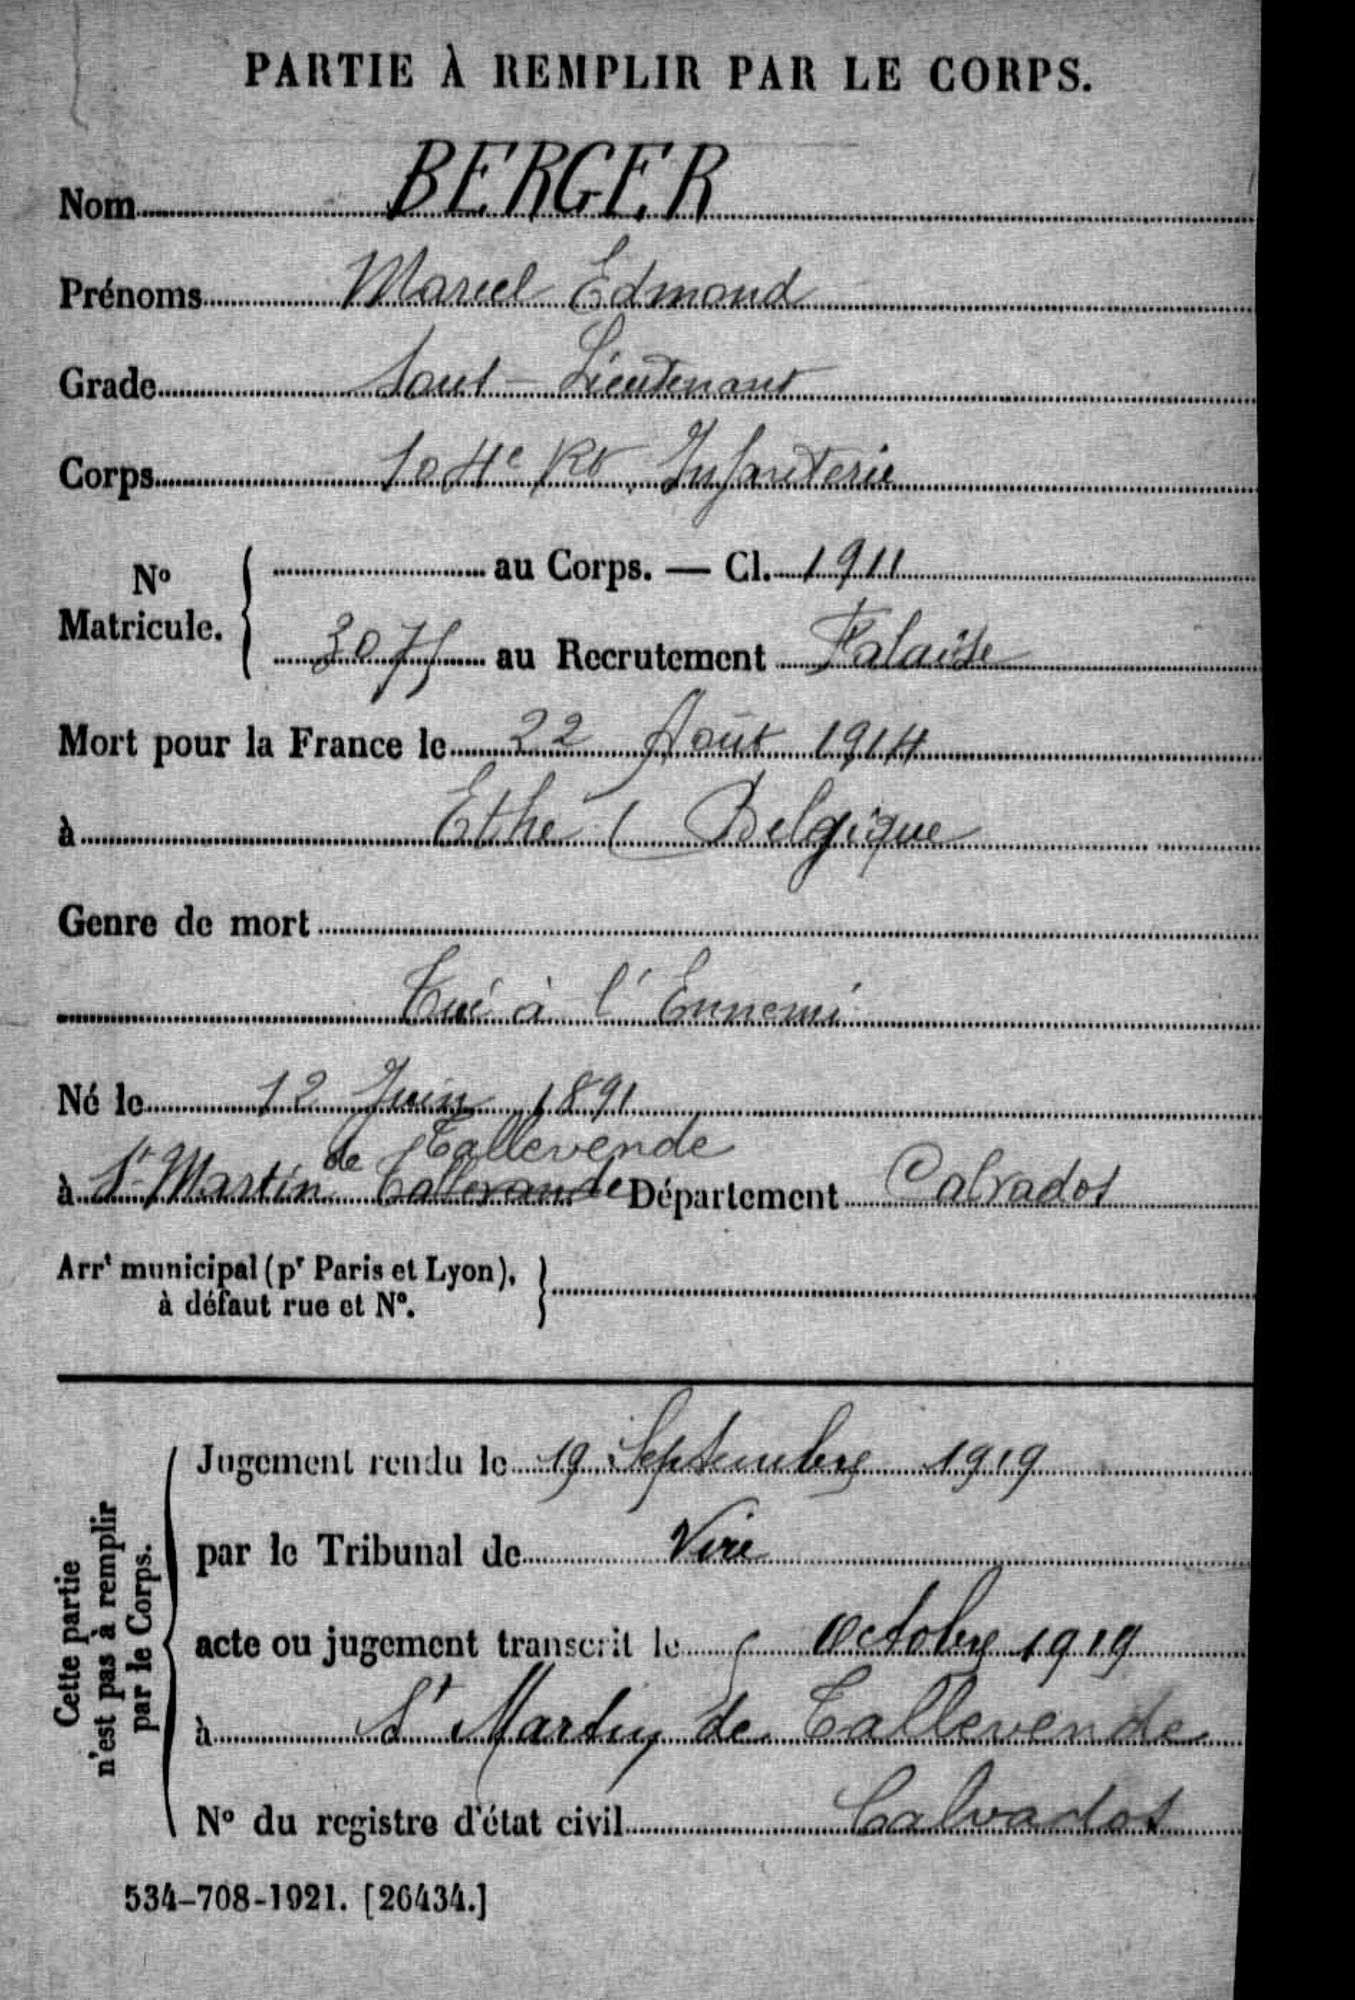 PARTIE À REMPLIR PAR LE CORPS.
Nom BERGER
Prénoms Marcel Edmond
Grade Sous-Lieutenant
Corps 104e Rt Infanterie
No Matricule. { au Corps. — Cl. 1911
3075 au Recrutement Falaise
Mort pour la France le 22 Août 1914
à Ethe ( Belgique
Genre de mort
Tué à l'Ennemi
Né le 12 Juin 1891
de Tallevende
à St Martin Département Calvados
Arrt municipal (pr Paris et Lyon), }
à défaut rue et No.
Cette partie n'est pas à remplir par le Corps.
Jugement rendu le 19 Septembre 1919
par le Tribunal de Vire
acte ou jugement transcrit le Octobre 1919
à St Martin de Tallevende
No du registre d'état civil Calvados
534-708-1921. [26434.]